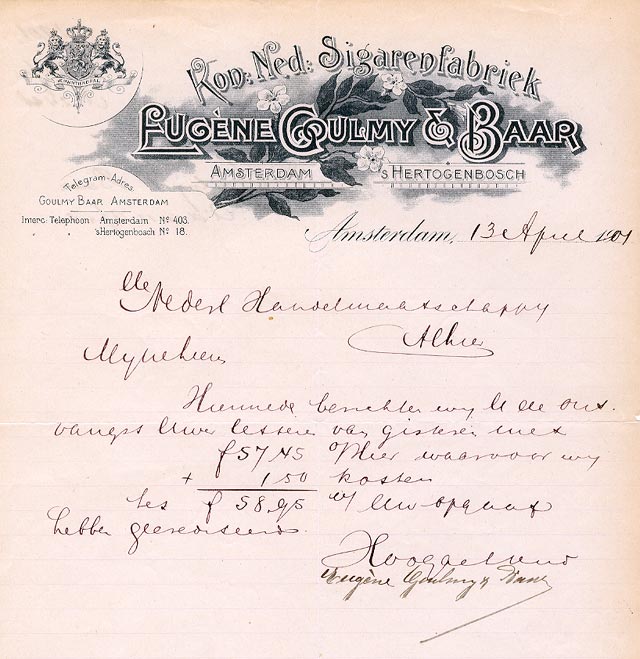 Kon: Ned: Sigarenfabriek
Eugène Goulmy & Baar
Amsterdam 'sHertogenbosch
Telegram-Adres:
Goulmy Baar Amsterdam
Interc: Telephoon Amsterdam No 403.
'sHertogenbosch No 18.
Amsterdam, 13 April 1901
de
Nederl Handelmaatschappy
Alhier
Mijneheeren
Hiermede berichten wy U de ont-
vangst Uwer letteren van gisteren met
f 57,45 waarvoor wy
+ 1,50 kosten
tes f 58,95 Uw opgaaf
hebben gecrediteerd.
Hoogachtend
Eugène Goulmy & Baar